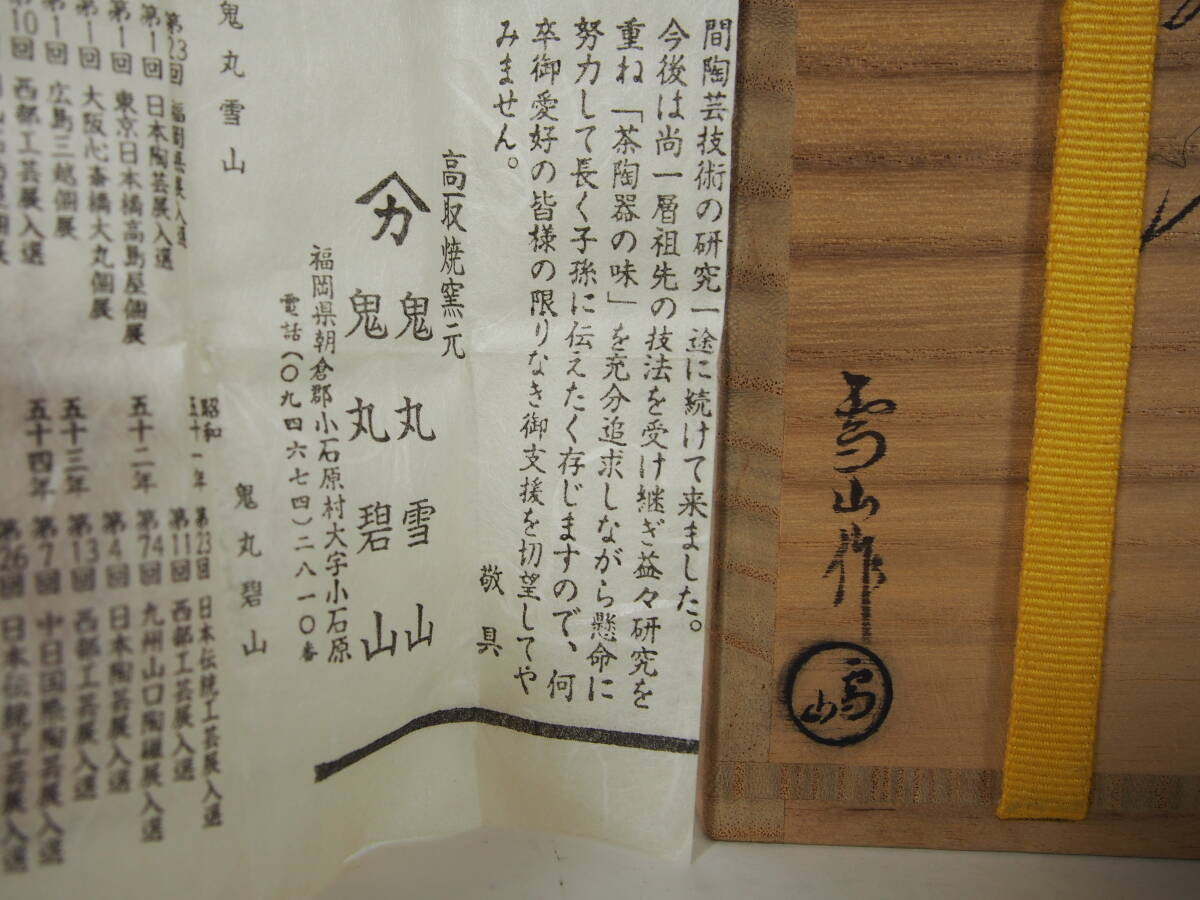 間陶芸技術の研究一途に続けて来ました。
今後は尚一層祖先の技法を受け継ぎ益々研究を
重ね「茶陶器の味」を充分追求しながら懸命に
努力して長く子孫に伝えたく存じますので、何
卒御愛好の皆様の限りなき御支援を切望してや
みません。
敬具
高取焼窯元
鬼丸雪山
鬼丸碧山
福岡県朝倉郡小石原村大字小石原
電話(〇九四六七四)二八一〇番
鬼丸雪山
第23回 福岡県展入選
第1回 日本陶芸展入選
第1回 東京日本橋高島屋個展
第1回 大阪心斎橋大丸個展
第1回 広島三越個展
第10回 西部工芸展入選
鬼丸碧山
昭和
五十一年 第23回 日本伝統工芸展入選
第11回 西部工芸展入選
五十二年 第74回 九州山口陶磁展入選
第4回 日本陶芸展入選
五十三年 第13回 西部工芸展入選
五十四年 第7回 中日国際陶芸展入選
第26回 日本伝統工芸展入選
雪山作
雪山